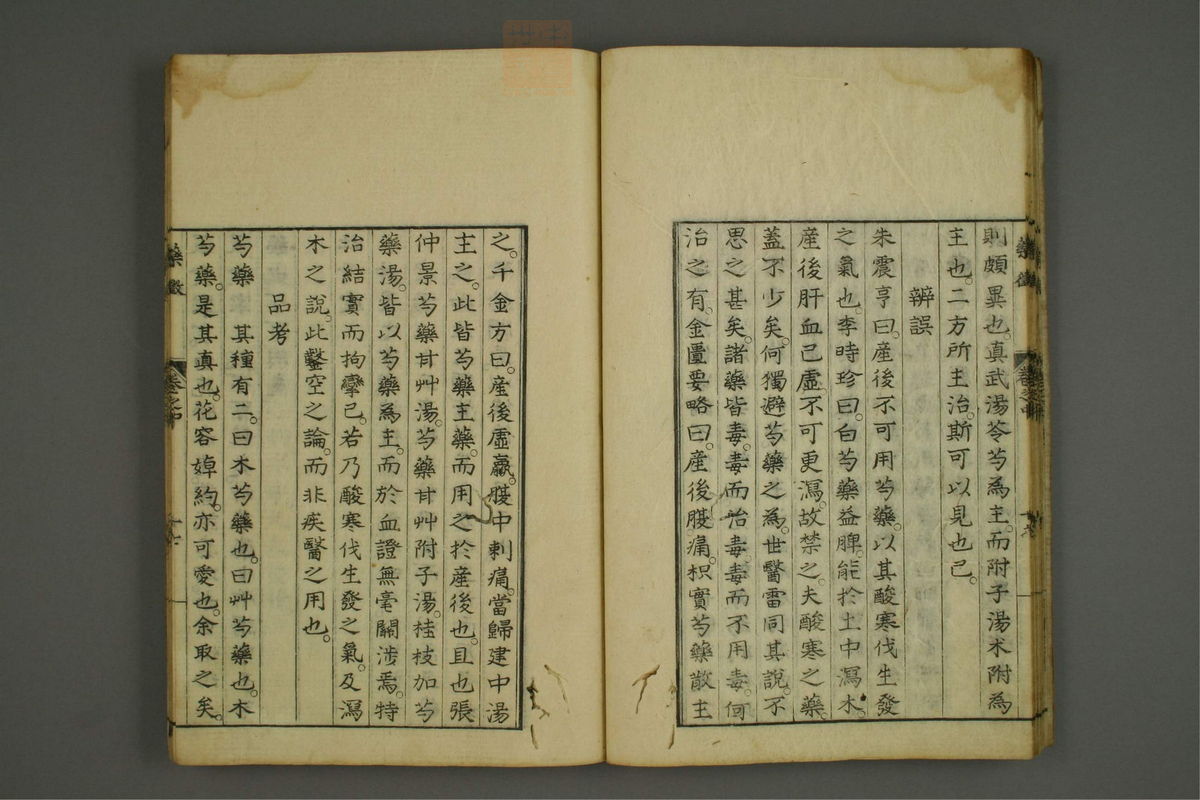 則頗異也。真武湯苓芍為主。而附子湯朮附為
主也。二方所主治。斯可以見也已。
辨誤
朱震亨曰。產後不可用芍藥。以其酸寒伐生發
之氣也。李時珍曰。白芍藥益脾。能於土中瀉木。
產後肝血已虛。不可更瀉。故禁之。夫酸寒之藥。
蓋不少矣。何獨避芍藥之為。世醫雷同其說。不
思之甚矣。諸藥皆毒。毒而治毒。毒而不用毒。何
治之有。金匱要略曰。產後腹痛。枳實芍藥散主
之。千金方曰。產後虛羸。腹中刺痛。當歸建中湯
主之。此皆芍藥主藥。而用之於產後也。且也張
仲景芍藥甘艸湯。芍藥甘艸附子湯。桂枝加芍
藥湯。皆以芍藥為主。而於血證無毫關涉焉。特
治結實而拘攣已。若乃酸寒伐生發之氣。及瀉
木之說。此鑿空之論。而非疾醫之用也。
品考
芍藥 其種有二。曰木芍藥也。曰艸芍藥也。木
芍藥。是其真也。花容婥約。亦可愛也。余取之矣。
藥徵
卷之中